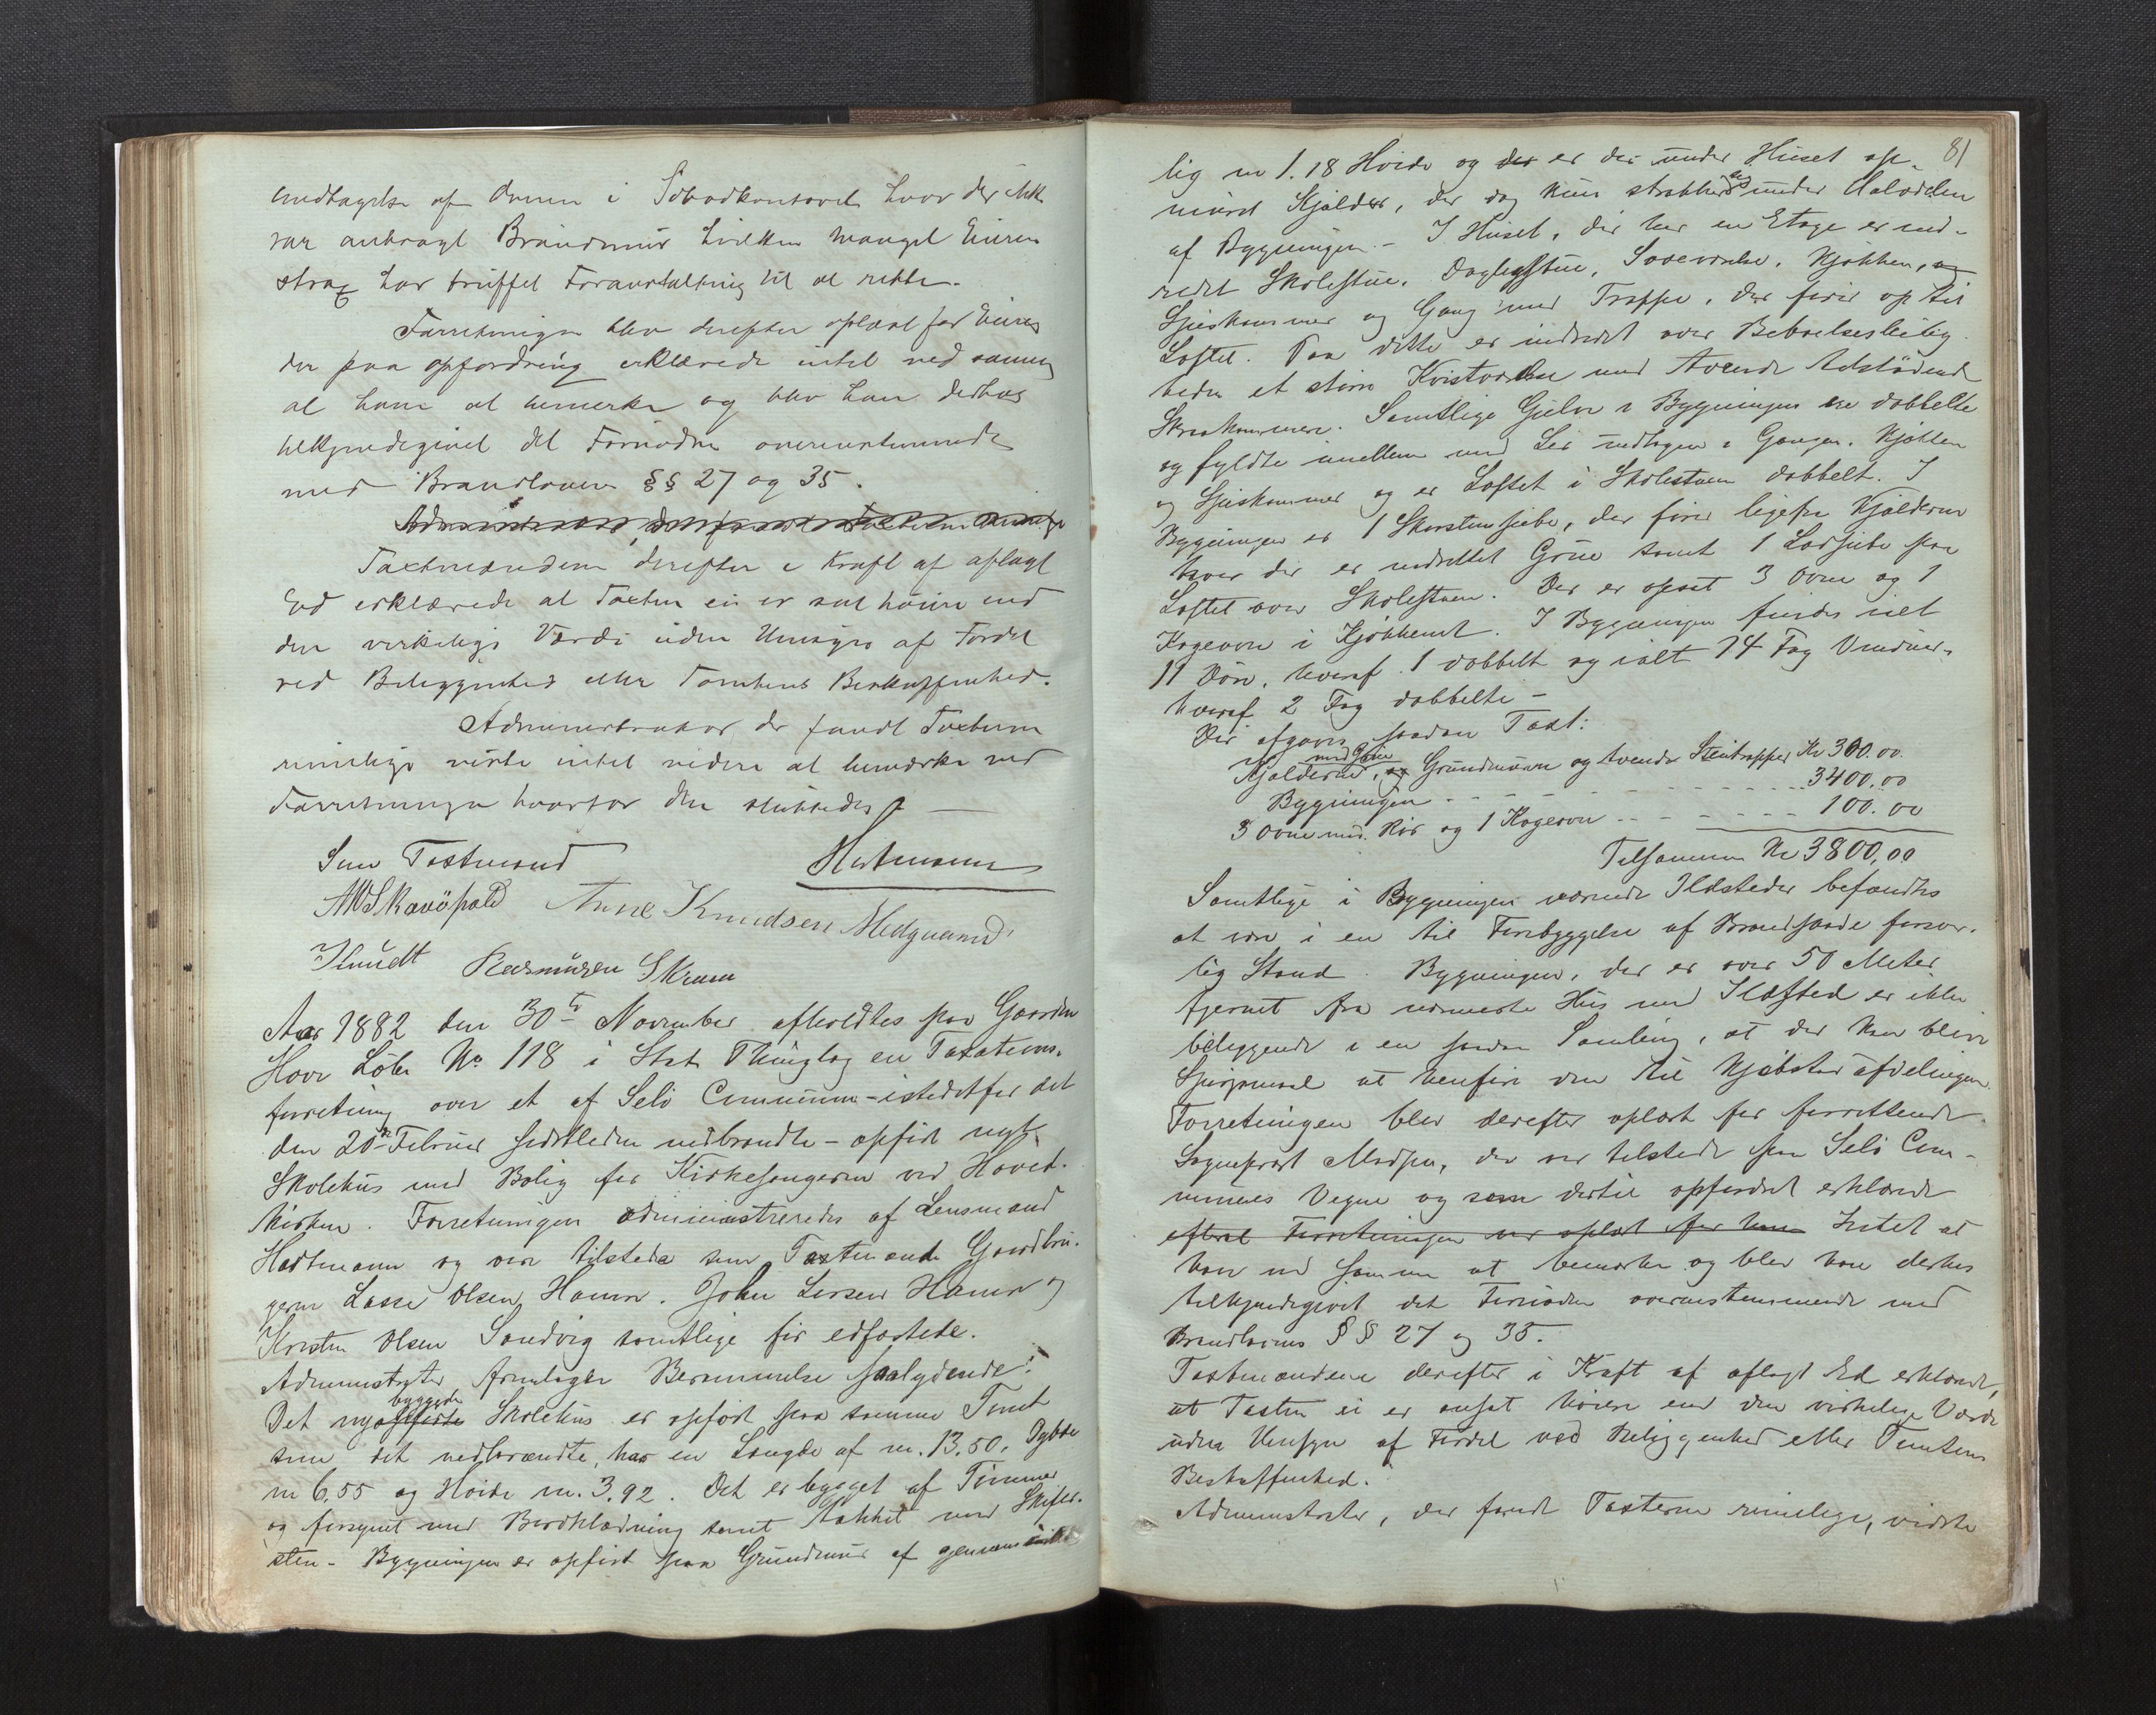 undtagelse af Ovnen i Tobakkontoret hvor der ikke
var anbragt Brandmur hvilken Mangel Eieren
strax har truffet Foranstaltning til at rette.
Forretningen blev derefter oplæst for Eieren
der paa Opfordring erklærede intet ved samme
at have at bemerke og blev ham derhos
tilkjendegivet det Fornødne overensstemmende
med Brandlovens §§ 27 og 35.
Taxtmændene derefter i Kraft af aflagt
Ed erklærede at Taxten ei er sat høiere end
den virkelige Værdi uden Hensyn af Fordel
ved Beliggenhed eller Tomtens Beskaffenhed.
Administrator der fandt Taxterne
rimelige vidste intet videre at bemærke ved
Forretningen hvorfor den sluttedes. —
Som Taxtmænd Hartmann
Anne Knudsen
Knudt Rasmusen
Aar 1882 den 30te November afholdtes paa Gaarden
Hove Løbe No 118 i Thinglag en Taxations-
forretning over et af Selø Commune - istedetfor det
den 20de Februar sidstleden nedbrændte - opført nyt
Skolehus med Bolig for Kirkesangeren ved Hoved-
kirken. Forretningen administreredes af Lensmand
Hartmann og vare tilstede som Taxtmænd Gaardbru-
gerne Lasse Olsen Hamre, John Larsen Hamre og
Karsten Olsen Sandvig samtlige før edfæstede.
Administrator fremlagde Berammelse saalydende:
Det nyopførte byggede Skolehus er opført paa samme Tomt
som det nedbrændte, har en Længde af m. 13.50, Dybde
m 6,55 og Høide m. 3.92. Det er bygget af Tømmer
og forsynet med Bordklædning samt tækket med Skifer-
sten - Bygningen er opført paa Grundmur af gjennemsnit
81
lig m 1.18 Høide og der er der under Huset op-
muret Kjælder, der dog kun strækker sig under Halvdelen
af Bygningen. - I Huset, der har en Etage er ind-
redet Skolestue, Daglegstue, Soveværelse, Kjøkken, og
Spiskammer og Gang med Trappe, der fører op til
Loftet. Paa dette er indredet over Beboelsesleilig-
heden et større Kvistværelse med tvende tilstødende
Skraakammere. Samtlige Gulve i Bygningen ere dobbelte
og fyldte imellem med Ler undtagen i Gangen, Kjøkken
og Spiskammer og er Loftet i Skolestuen dobbelt. I
Bygningen er 1 Skorstenspibe, der fører ligefra Kjælderen
hvor der er indrettet Grue samt 1 Løspibe paa
Loftet over Skolestuen. Der er opsat 3 Ovne og 1
Kogeovn i Kjøkkenet. I Bygningen findes ialt
11 Døre, hvoraf 1 dobbelt og ialt 14 Fag Vinduer,
hvoraf 2 Fag dobbelte -
Der afgaves saadan Taxt:
Kjælderen, med Grue og Grundmuren og tvende Stentrapper Kr 300.00
Bygningen - - - - - - 3400,00
3 Ovne med Rør og 1 Kogeovn - - - - - 100.00
Tilsammen Kr 3800,00
Samtlige i Bygningen værende Ildsteder befandtes
at være i en til Forebyggelse af Brandskade forsvar-
lig Stand. Bygningen, der er over 50 Meter
fjernet fra nærmeste Hus med Ildsted er ikke
beliggende i en saadan Samling, at der kan blive
Spørgsmaal at henføre den til Kjøbstadafdelingen.
Forretningen blev derefter oplæst for forrettende
Sogneprest Madsen, der var tilstede paa Selø Com-
munes Vegne og som dertil opfordret erklærede
efterat Forretningen var oplæst for ham Intet at
have ved samme at bemærke og blev ham derhos
tilkjendegivet det Fornødne overensstemmende med
Brandlovens §§ 27 og 35.
Taxtmændene derefter i Kraft af aflagt Ed erklærede,
at Taxten ei er ansat høiere end den virkelige Værdi
uden Hensyn af Fordel ved Beliggenhed eller Tomtens
Beskaffenhed.
Administrator, der fandt Taxterne rimelige, vidste